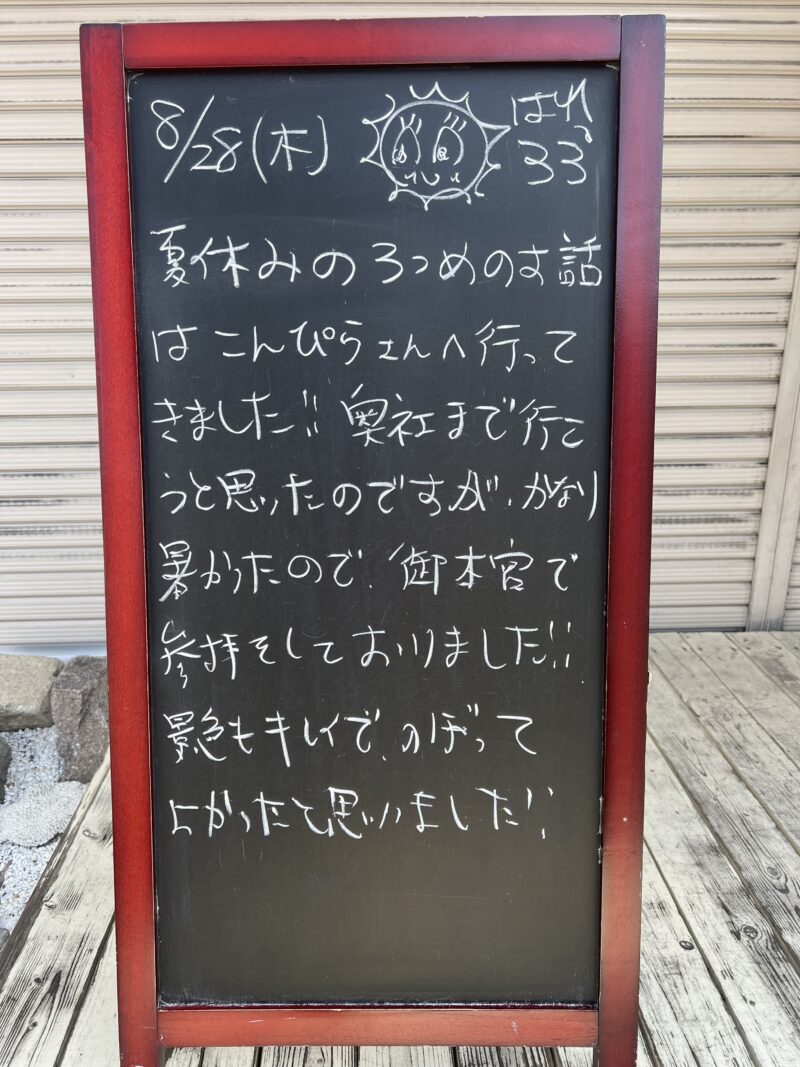 8/28(木) はれ 33°
夏休みの3つめのお話
は こんぴらさんへ行って
きました!! 奥社まで行こ
うと思ったのですが、かなり
暑かったので、御本宮で
参拝をしておりました!!
景色もキレイで、のぼって
よかったと思いました!!